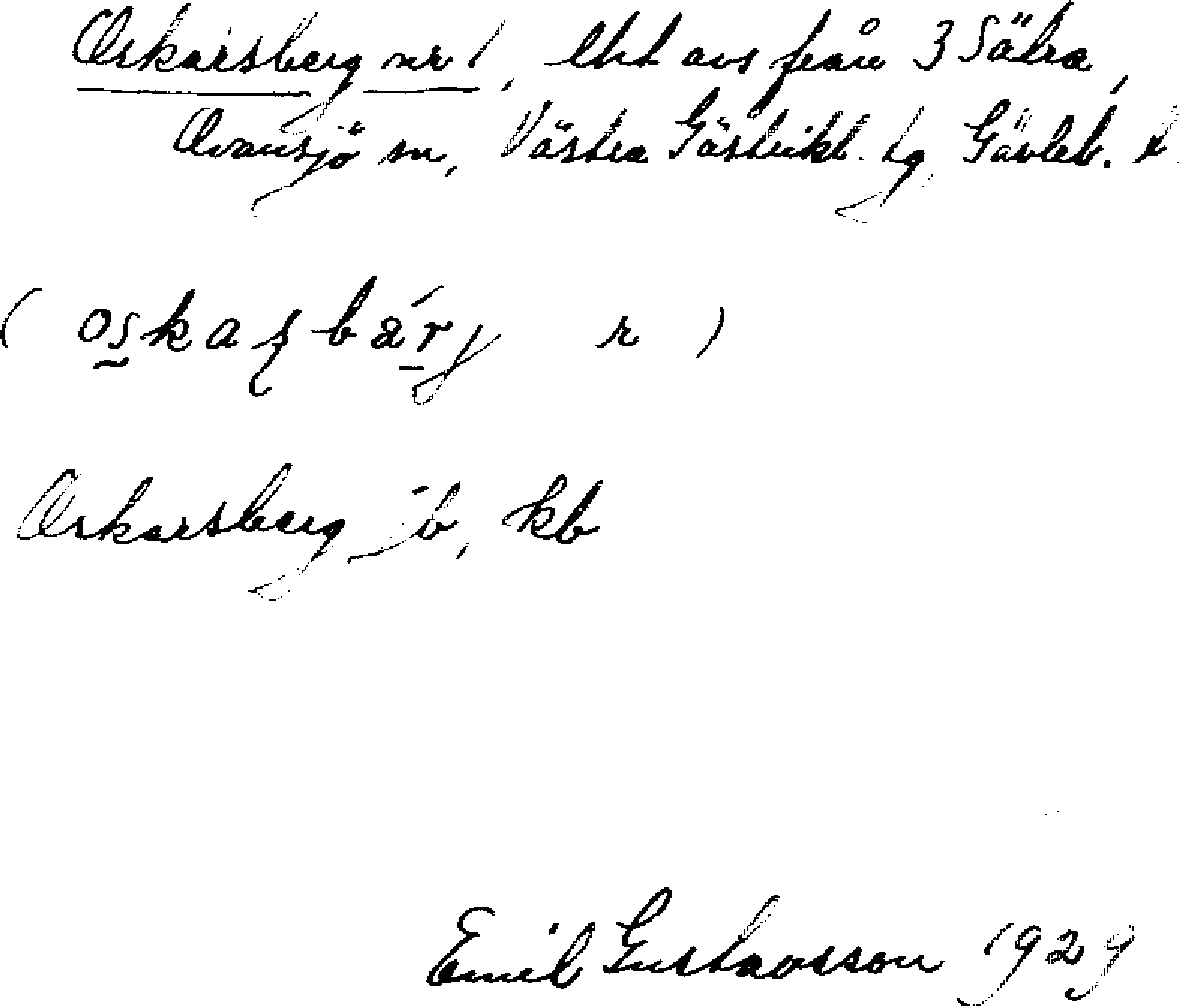 Oskarsberg nr 1, lht avs från 3 Sätra,
Ovansjö sn, Västra Gästrikl. tg Gävleb. l
( oskaʂbárj r )
Oskarsberg jb, kb
Emil Gustavsson 1929